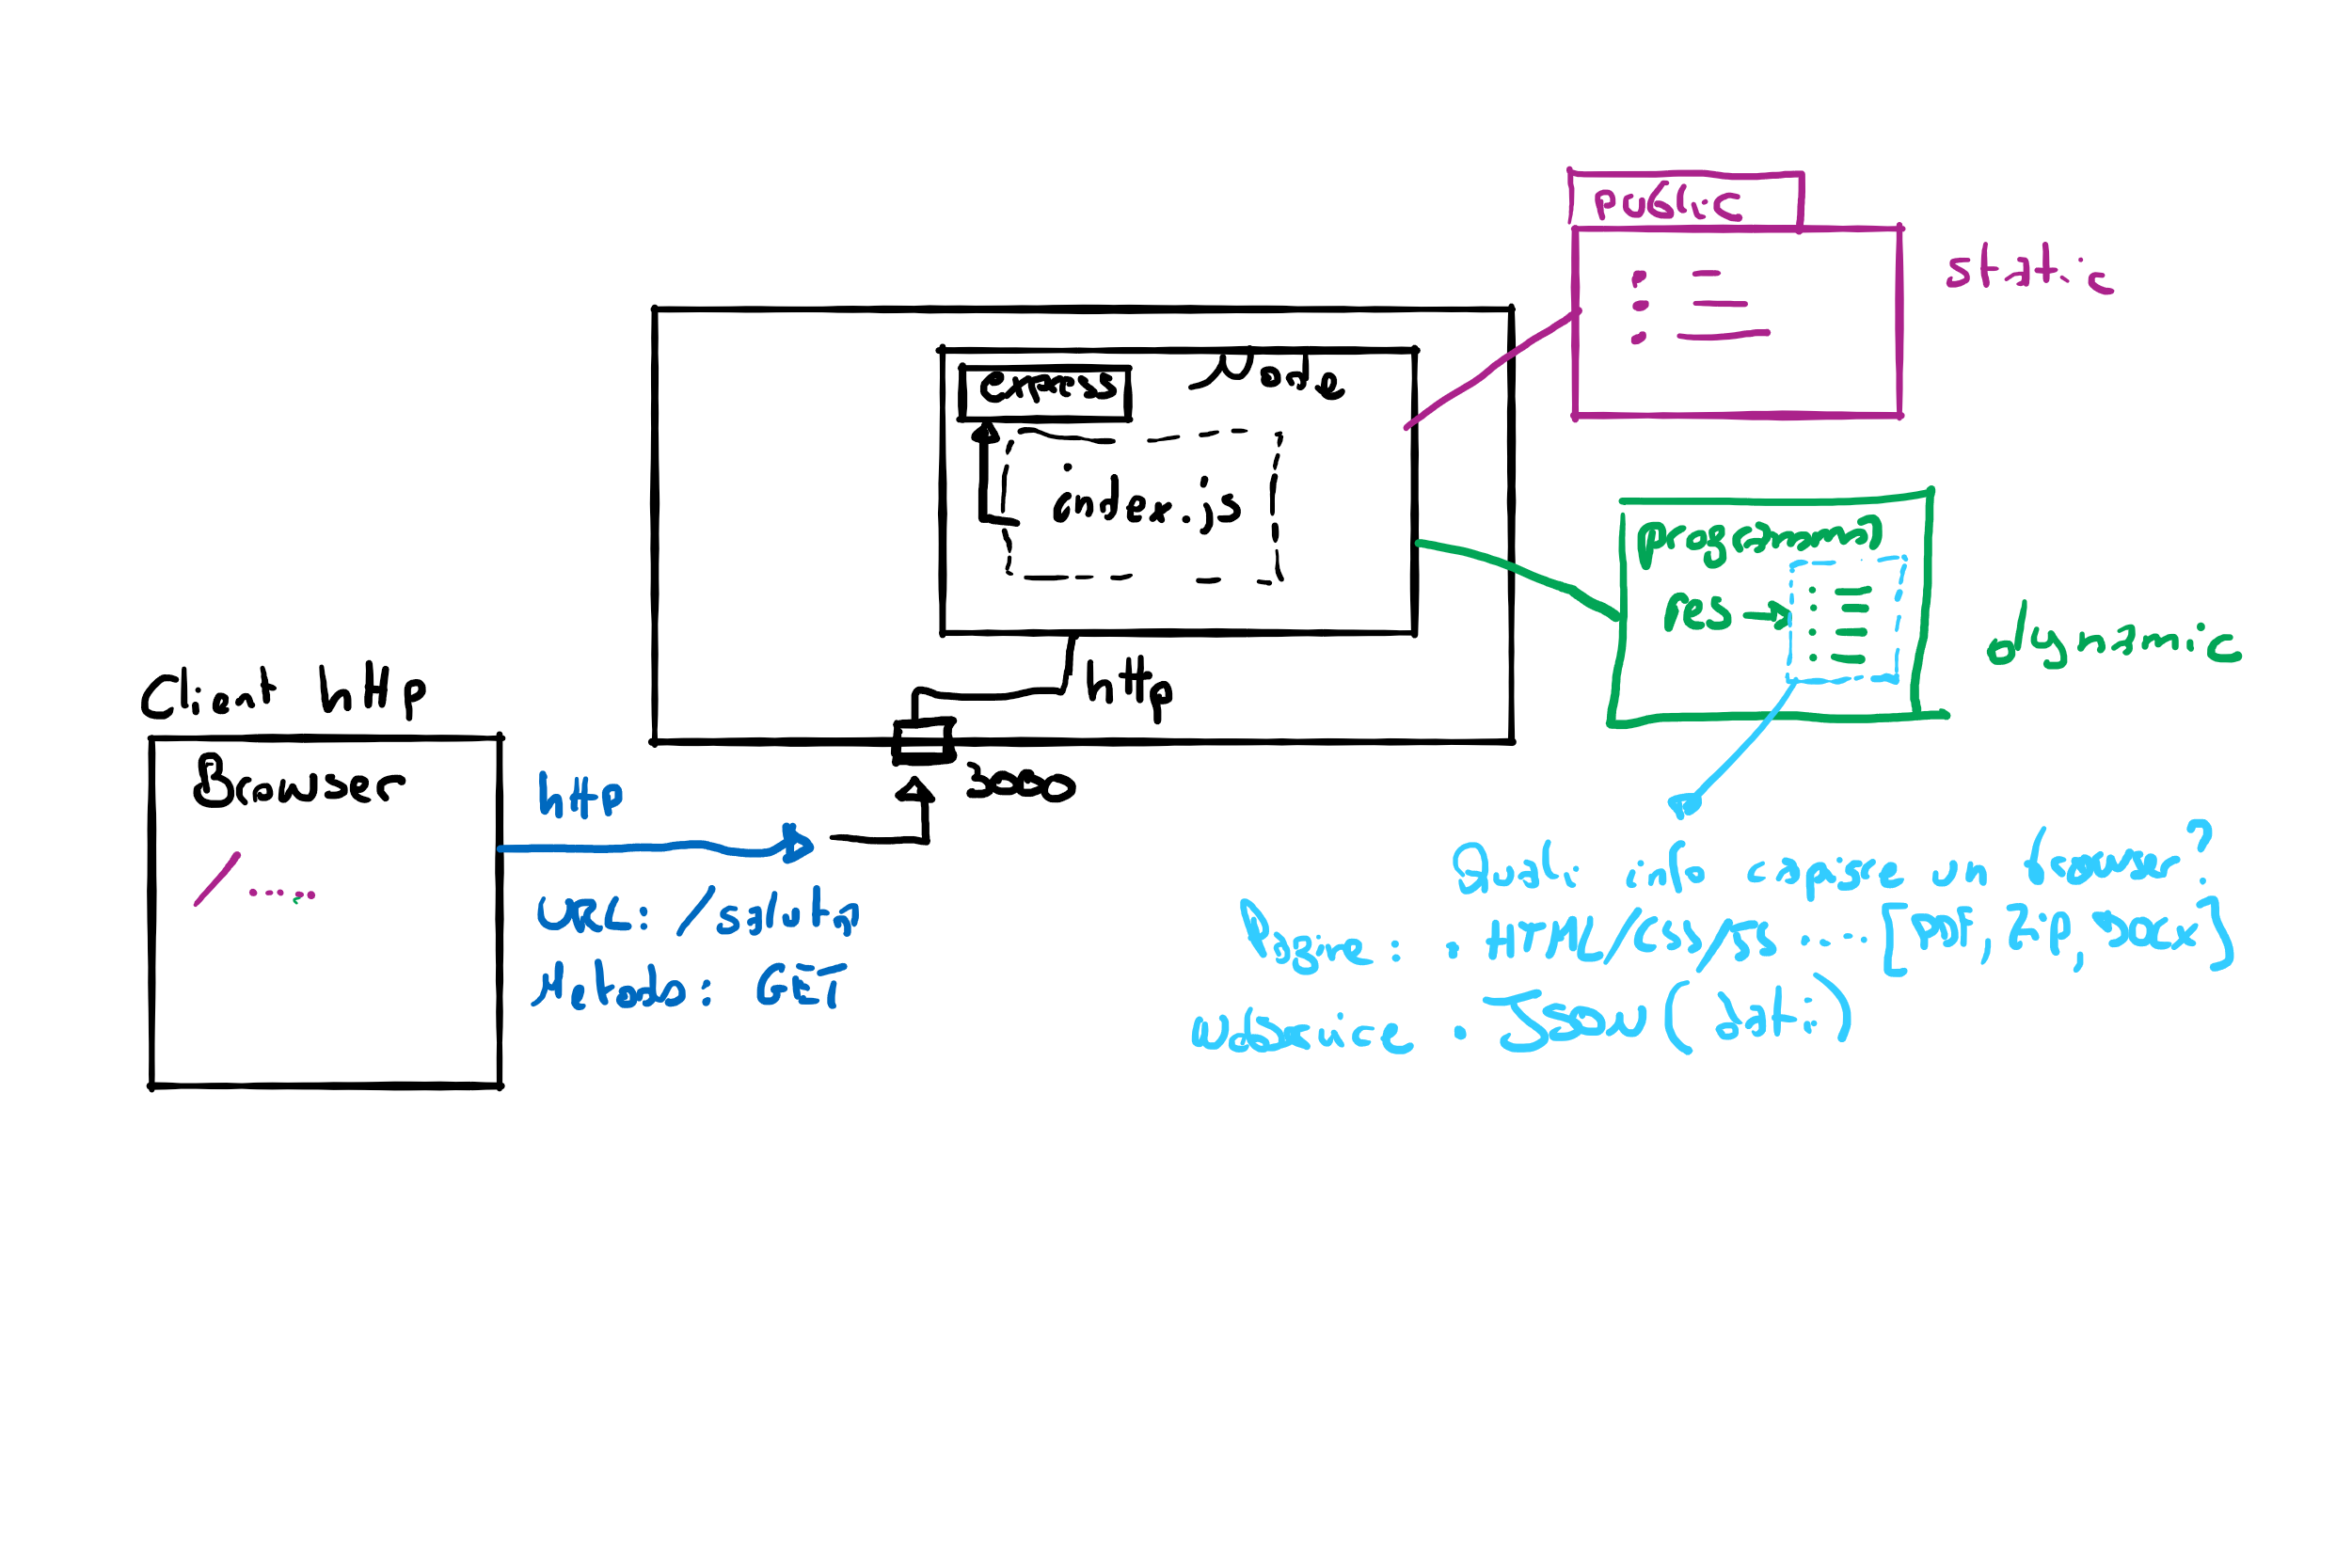 public
static
express
Node
index.js
Programma?
res →
dynamic
Client http
http
Browser
3000
/.....
http
URL: /saluta
Metodo: GET
Quali info capisce un browser?
Pagine: • HTML/CSS/JS .... [PDF, ZIP, Docx]
Webservice • JSON (dati)